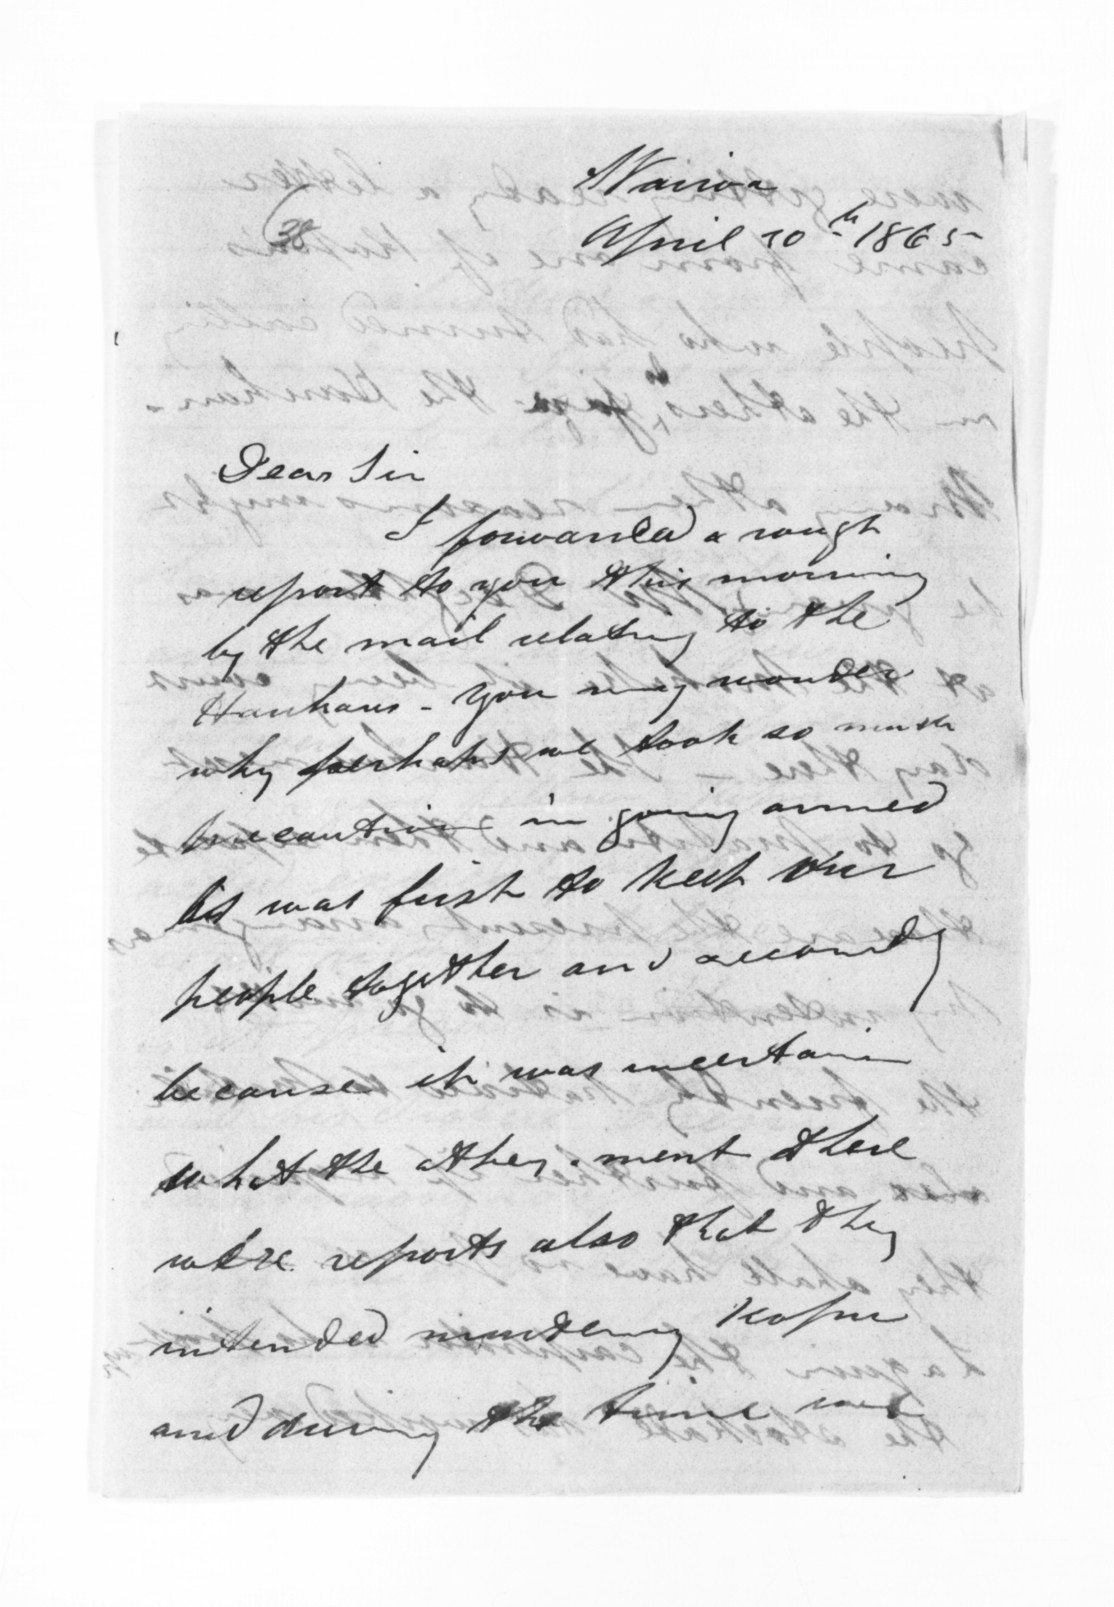 Wairoa
38
April 10th 1865
Dear Sir
I forwarded a rough
report to you this morning
by the mail relating to the
Hauhaus - You may wonder
why perhaps we took so much
precaution in going armed
was first to keep our
people together and secondly
because it was uncertain
what the they. ment there
were reports also that they
intended murdering Kopu
and during the time we